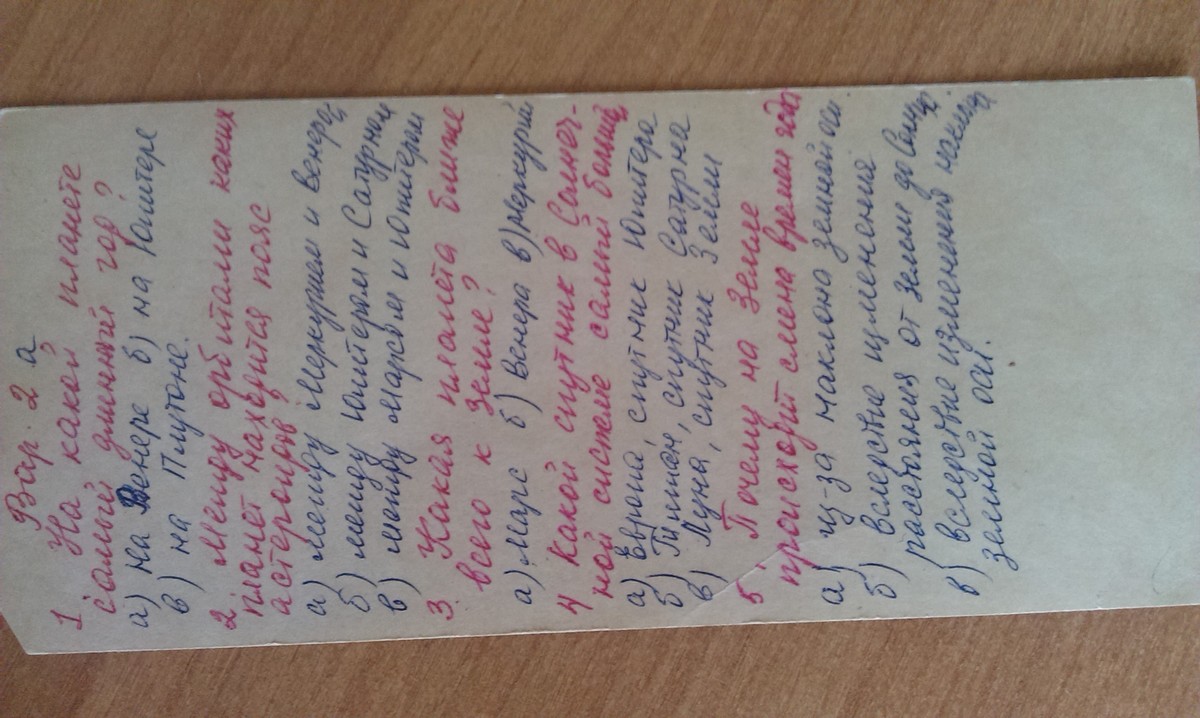 Вар. 2 а
1 На какой планете
самый длинный год?
а) на Венере б) на Юпитере
в) на Плутоне.
2 Между орбитами каких
планет находится пояс
астероидов?
а) между Меркурием и Венерой
б) между Юпитером и Сатурном
в) между Марсом и Юпитером
3. Какая планета ближе
всего к Земле?
а) Марс б) Венера в) Меркурий
4 Какой спутник в Солнеч-
ной системе самый больш
а) Европа, спутник Юпитера
б) Титан, спутник Сатурна
в) Луна, спутник Земли
5. Почему на Земле
происходит смена времен года
а) из-за наклона земной оси
б) вследствие изменения
расстояния от Земли до Солнца
в) вследствие изменения наклона
земной оси.